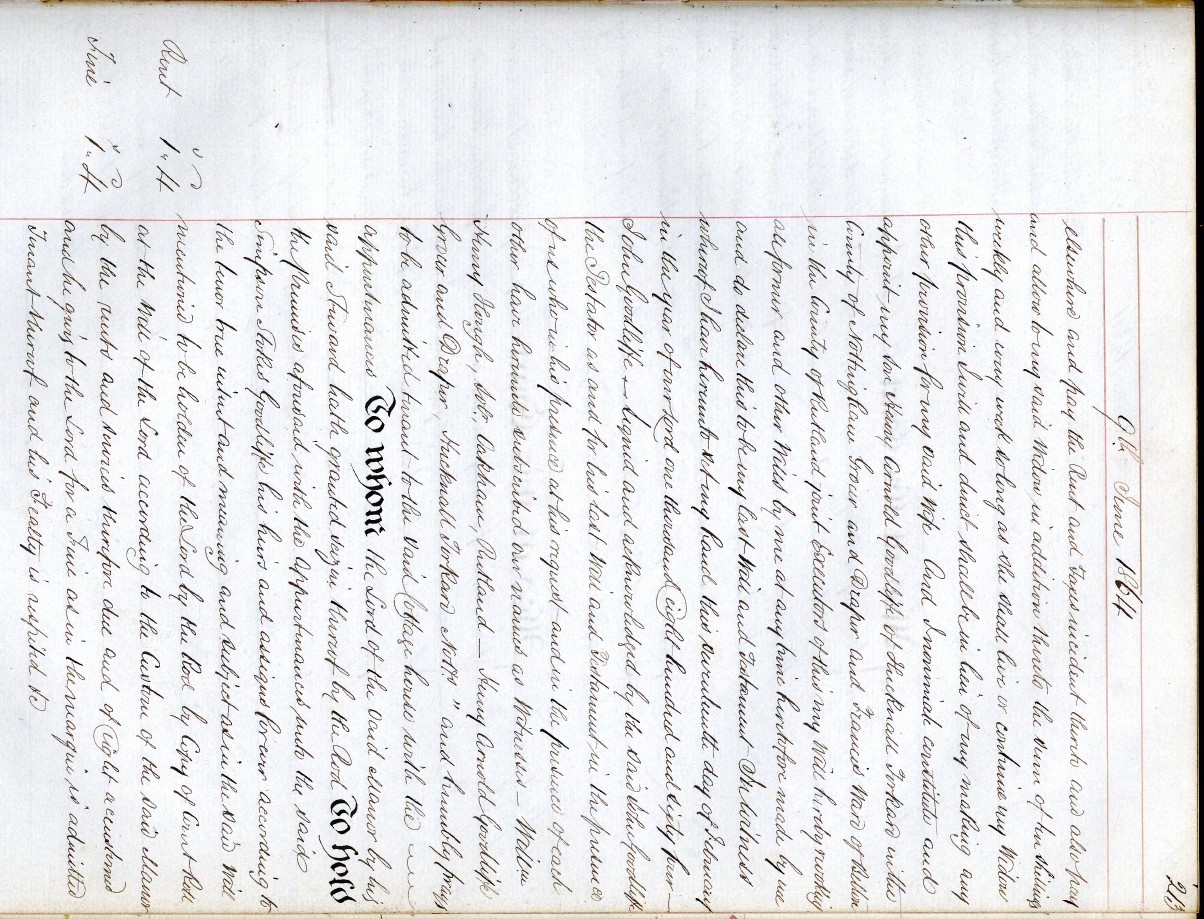 213
9th June 1864
elsewhere and pay the Rent and Taxes incident thereto and also pay
and allow to my said Widow in addition thereto the sum of ten shillings
weekly and every week so long as she shall live or continue my Widow
this provision I wish and direct shall be in lieu of my making any
other provision for my said Wife And I nominate constitute and
appoint my son Henry Arnold Goodliffe of Hucknall Torkard in the
County of Nottingham Grocer and Draper and Francis Ward of Belton
in the County of Rutland joint Executors of this my Will hereby revoking
all former and other Wills by me at any time heretofore made by me
and do declare this to be my last Will and Testament In witness
whereof I have hereunto set my hand this seventeenth day of February
in the year of our Lord one thousand Eight hundred and sixty four —
John Goodliffe — Signed and acknowledged by the said John Goodliffe
the Testator as and for his last Will and Testament in the presence
of us who in his presence at his request and in the presence of each
other have hereunto subscribed our names as Witnesses — William
Henry Hough, Solr. Oakham, Rutland — Henry Arnold Goodliffe
Grocer and Draper, Hucknall Torkard Notts." and humbly prays
to be admitted tenant to the said Cottage house with the
appurtenances To whom the Lord of the said Manor by his
said Steward hath granted seizin thereof by the Rod To hold
the premises aforesaid with the appurtenances unto the said
Simpson Fulkes Goodliffe his heirs and assigns for ever according to
the tenor true intent and meaning and subject as in the said Will
mentioned to be holden of the Lord by the Rod by Copy of Court Roll
at the Will of the Lord according to the Custom of the said Manor
by the rents and services therefore due and of right accustomed
and he gives to the Lord for a Fine as in the margin is admitted
Tenant thereof and his Fealty is respited &c
s d
Rent 1 " 4
s d
Fine 1 " 4